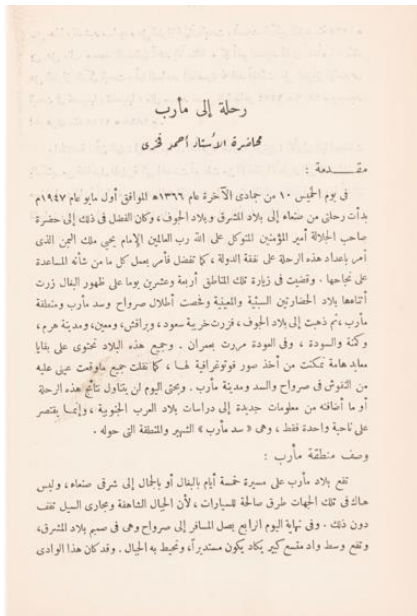 رحلة إلى مأرب
محاضرة الأستاذ أحمد فخرى
مقدمة :
فى يوم الخميس ١٠ من جمادى الآخرة عام ١٣٦٦ه الموافق أول مايو عام ١٩٤٧م
بدأت رحلتى من صنعاء إلى بلاد المشرق وبلاد الجوف، وكان الفضل فى ذلك إلى حضرة
صاحب الجلالة أمير المؤمنين المتوكل على الله رب العالمين الإمام يحيى ملك اليمن الذى
أمر بإعداد هذه الرحلة على نفقة الدولة، كما تفضل فأمر بعمل كل ما من شأنه المساعدة
على نجاحها. وقضيت فى زيارة تلك المناطق أربعة وعشرين يوما على ظهور البغال زرت
أثناءها بلاد الحضارتين السبئية والمعينية وفحصت أطلال صرواح وسد مأرب ومنطقة
مأرب، ثم ذهبت إلى بلاد الجوف، فزرت خربة سعود، وبراقش، ومعين، ومدينة هرم،
وكمنة والسودة، وفى العودة مررت بعمران. وجميع هذه البلاد تحتوى على بقايا
معابد هامة تمكنت من أخذ صور فوتوغرافية لها، كما نقلت جميع ماوقعت عينى عليه
من النقوش فى صرواح والسد ومدينة مأرب. وبحثى اليوم لن يتناول نتائج هذه الرحلة
أو ما أضافته من معلومات جديدة إلى دراسات بلاد العرب الجنوبية، وإنما يقتصر
على ناحية واحدة فقط، وهى «سد مأرب» الشهير والمنطقة التى حوله.
وصف منطقة مأرب :
تقع بلاد مأرب على مسيرة خمسة أيام بالبغال أو بالجمال إلى شرقى صنعاء، وليس
هناك فى تلك الجهات طرق صالحة للسيارات، لأن الجبال الشاهقة ومجارى السيل تقف
دون ذلك. وفى نهاية اليوم الرابع يصل المسافر إلى صرواح وهى فى صميم بلاد المشرق،
وتقع وسط واد متسع كبير يكاد يكون مستديراً، وتحيط به الجبال. وقد كان هذا الوادى